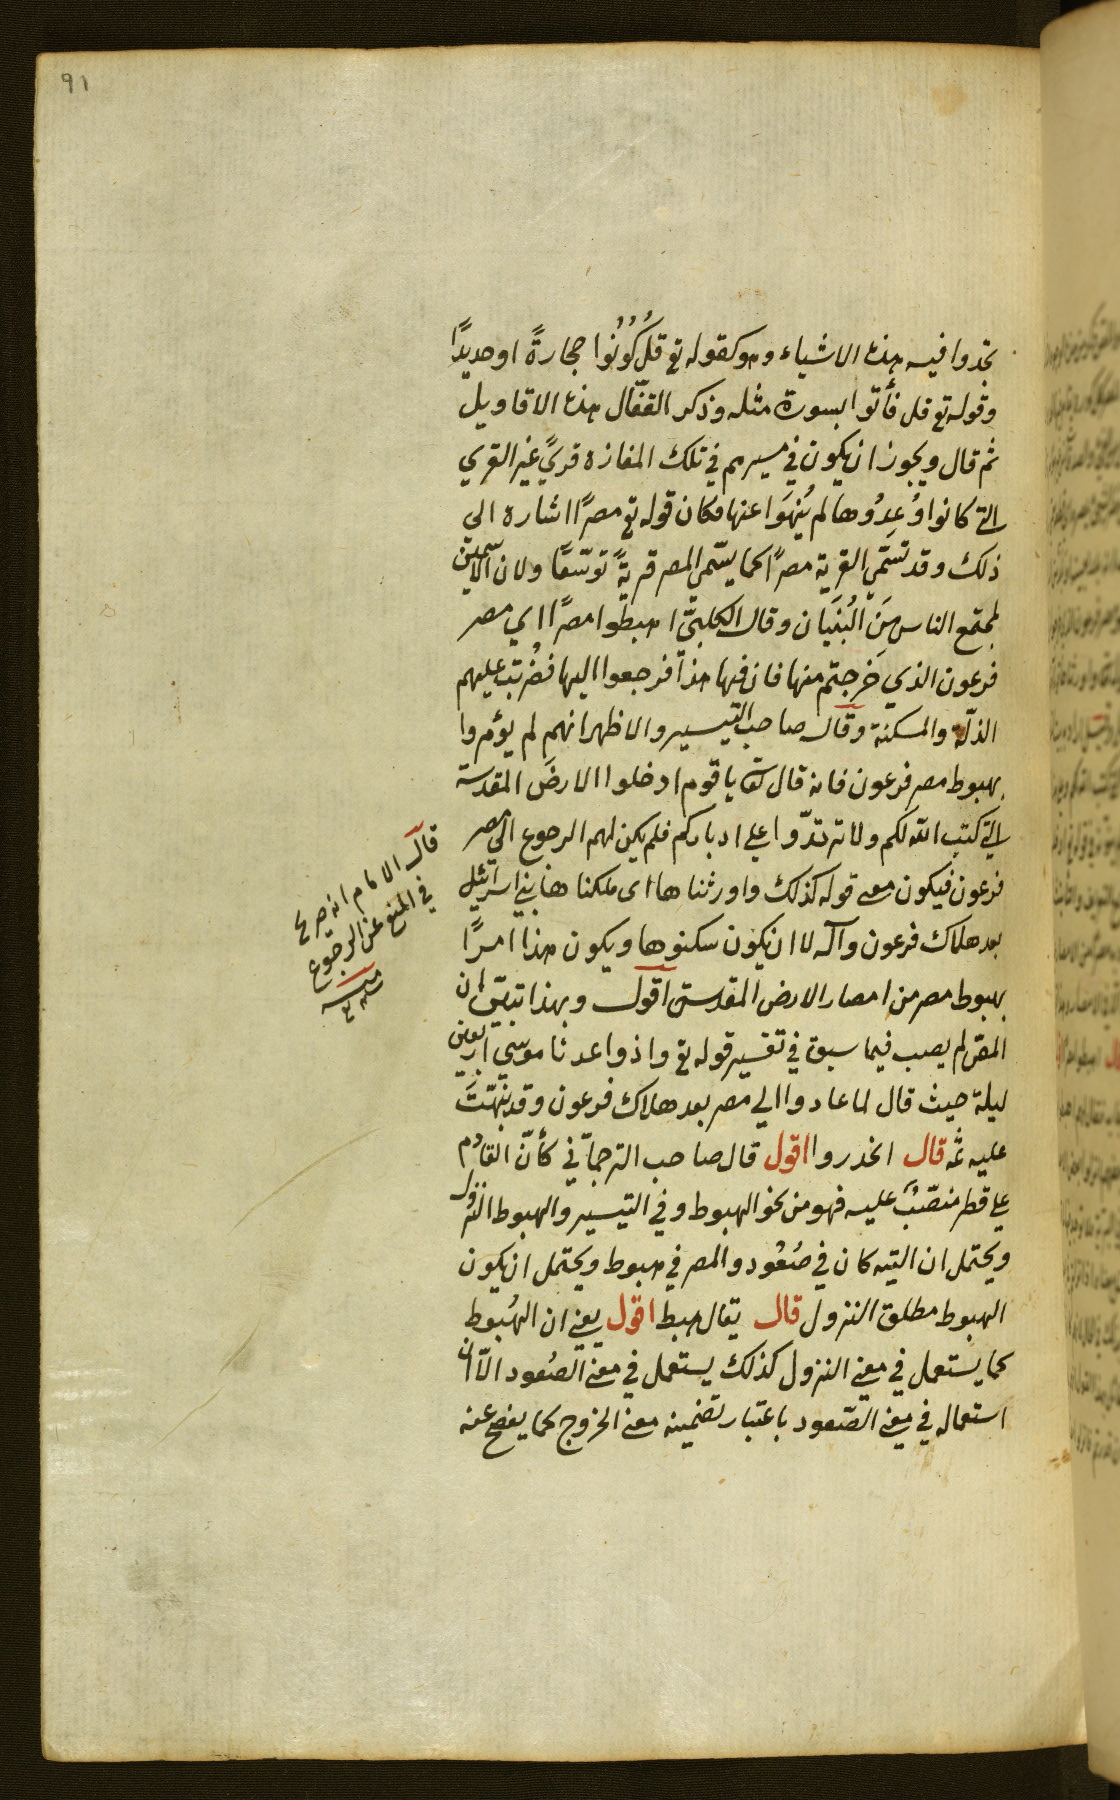 ٩١
تجدوا فيه هذه الاشياء وهو كقوله تع قُلْ كُونُوا حجارةً او حديدًا
وقوله تع قل فأتوا بسورة مثله وذكر القفّال هذه الاقاويل
ثم قال ويجوز ان يكون في مسيرهم في تلك المفازة قرىً غير القري
التي كانوا وُعِدُوها لم يُنهَوا عنها فكان قوله تع مصرًا اشارة الي
ذلك وقد تسَمّي القرية مصرًا كما يسّمي المصر قريةً توسّعًا ولان الاسمين
لمجتمع الناس مِنَ البُنيَان وقال الكلبيّ اهبطوا مصرًا اي مصر
فرعون الذي خرجتم منها فان فيها هذا فرجعوا اليها فضُربَت عليهم
الذلّة والمسكنة وقال صاحب التيسير والاظهر انهم لم يؤمروا
بهبوط مصر فرعون فانه قال تعا يا قوم ادخلوا الارضَ المقدسة
التي كتب الله لكم ولا ترتدّوا علي ادباركم فلم يكن لهم الرجوع الي مصر
فرعون فيكون معني قوله كذلك واورثناها اى ملكناها بني اسرائيل
بعد هلاك فرعون وآله لا ان يكون سكنوها ويكون هذا امرًا
بهبوط مصر من امصار الارض المقدسة اقول وبهذا تبيّن ان
المص لم يصب فيما سبق في تفسير قوله تع واذ واعدنا موسي اربعين
ليلة حيث قال لما عادوا الي مصر بعد هلاك فرعون وقد نبّهتَ
عليه ثمّه قال انحدروا اقول قال صاحب الترجمانّي كأنّ القادم
علي قطر منصّبٌ عليه فهو من نحو الهبوط وفي التيسير والهبوط النزول
ويحتمل ان التيه كان في صُعُود والمصر في هبوط ويحتمل ان يكون
الهبوط مطلق النزول قال يقال هبط اقول يعني ان الهُبوط
كما يستعمل في معني النزول كذلك يستعمل في معني الصُعود الّا ان
استعماله في معني الصّعود باعتبار تضمينه معني الخروج كما يفصح عنه
قال الامام انه صريح
في المنع عن الرجوع
منه